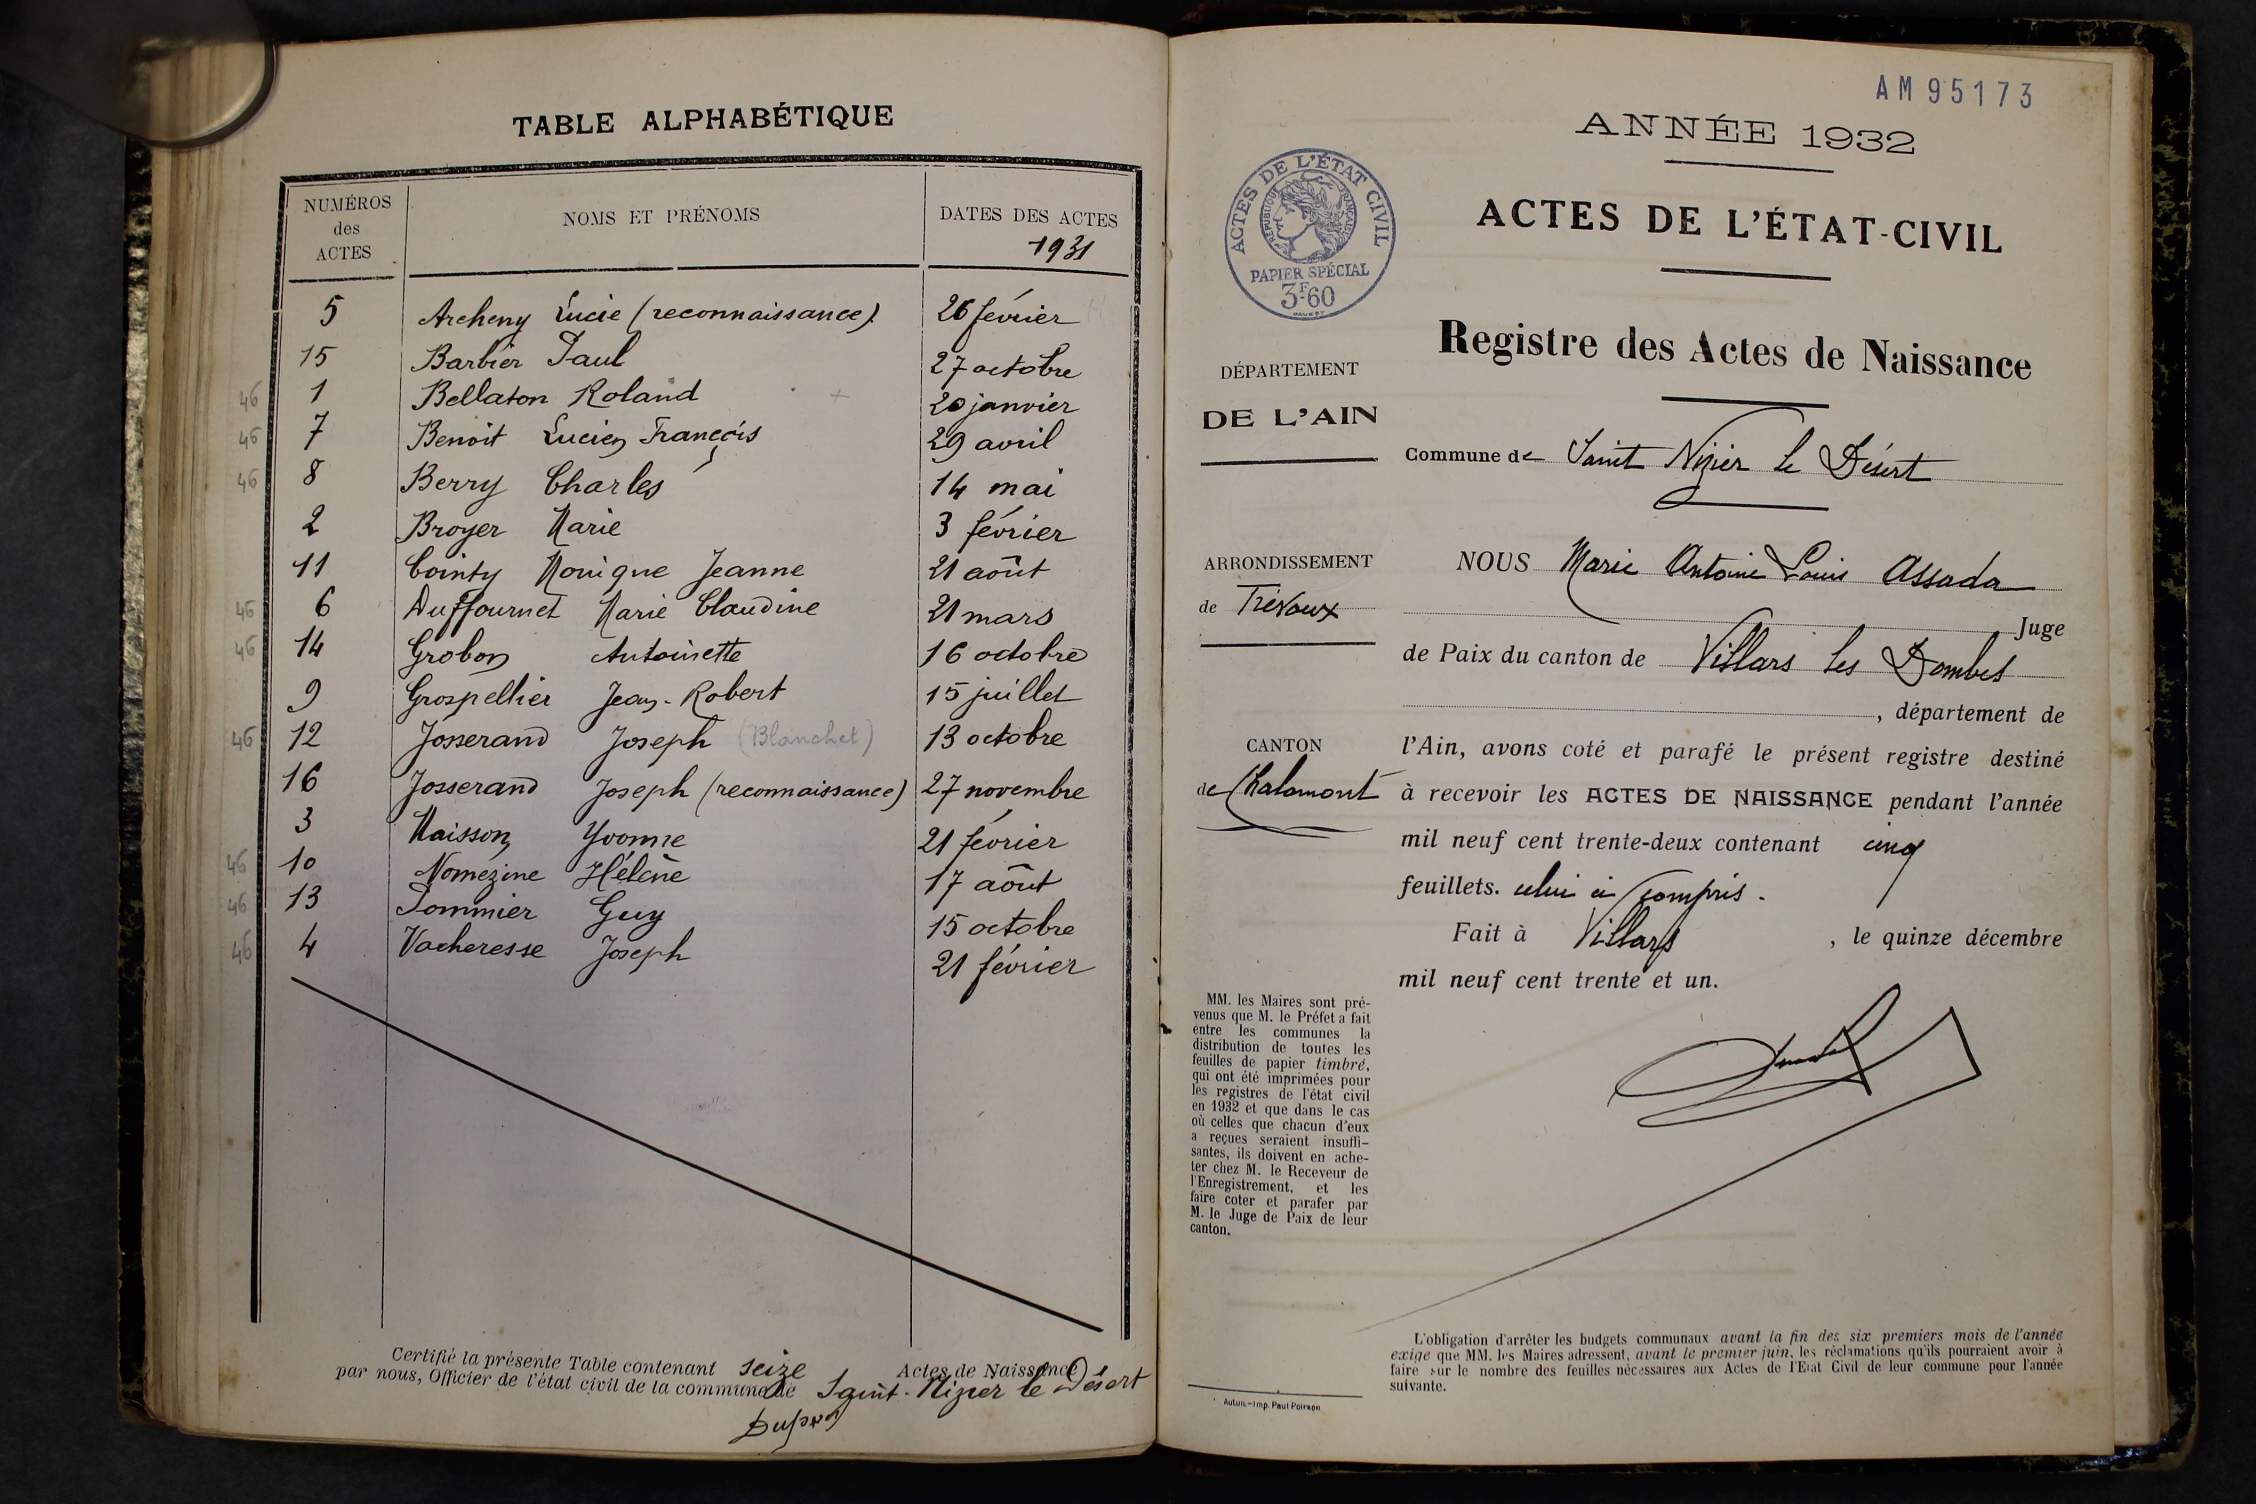 TABLE ALPHABÉTIQUE
NUMÉROS des ACTES
NOMS ET PRÉNOMS
DATES DES ACTES
1931
5 Archeny Lucie (reconnaissance) 26 février
15 Barbier Paul 27 octobre
46 1 Bellaton Roland + 20 janvier
46 7 Benoit Lucien François 29 avril
46 8 Berry Charles 14 mai
2 Broyer Marie 3 février
11 Cointy Monique Jeanne 21 août
46 6 Duffournet Marie Claudine 21 mars
46 14 Grobon Antoinette 16 octobre
9 Grospellier Jean-Robert 15 juillet
46 12 Josserand Joseph (Blanchet) 13 octobre
16 Josserand Joseph (reconnaissance) 27 novembre
3 Maisson Yvonne 21 février
46 10 Nomézine Hélène 17 août
46 13 Pommier Guy 15 octobre
46 4 Vacheresse Joseph 21 février
Certifié la présente Table contenant seize Actes de Naissance
par nous, Officier de l'état civil de la commune de Saint-Nizier le Désert
AM95173
ANNÉE 1932
ACTES DE L'ÉTAT CIVIL
RÉPUBLIQUE FRANÇAISE
PAPIER SPÉCIAL
3F60
ACTES DE L'ÉTAT-CIVIL
Registre des Actes de Naissance
DÉPARTEMENT
DE L'AIN
Commune de Saint Nizier le Désert
ARRONDISSEMENT
de Trévoux
NOUS Marie Antoine Louis Assada
Juge
de Paix du canton de Villars les Dombes
, département de
CANTON
de Chalamont
l'Ain, avons coté et parafé le présent registre destiné
à recevoir les ACTES DE NAISSANCE pendant l'année
mil neuf cent trente-deux contenant cinq
feuillets. celui ci compris.
Fait à Villars, le quinze décembre
mil neuf cent trente et un.
MM. les Maires sont pré-
venus que M. le Préfet a fait
entre les communes la
distribution de toutes les
feuilles de papier timbré,
qui ont été imprimées pour
les registres de l'état civil
en 1932 et que dans le cas
où celles que chacun d'eux
a reçues seraient insuffi-
santes, ils doivent en ache-
ter chez M. le Receveur de
l'Enregistrement, et les
faire coter et parafer par
M. le Juge de Paix de leur
canton.
L'obligation d'arrêter les budgets communaux avant la fin des six premiers mois de l'année
exige que MM. les Maires adressent, avant le premier juin, les réclamations qu'ils pourraient avoir à
faire sur le nombre des feuilles nécessaires aux Actes de l'Etat Civil de leur commune pour l'année
suivante.
Autun.-Imp. Paul Poirson